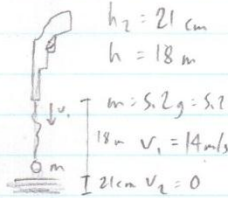 h₂ = 21 cm
h = 18 m
m = 5.2g = 5.2
v₁
18m v₁ = 14 m/s
m
21cm v₂ = 0